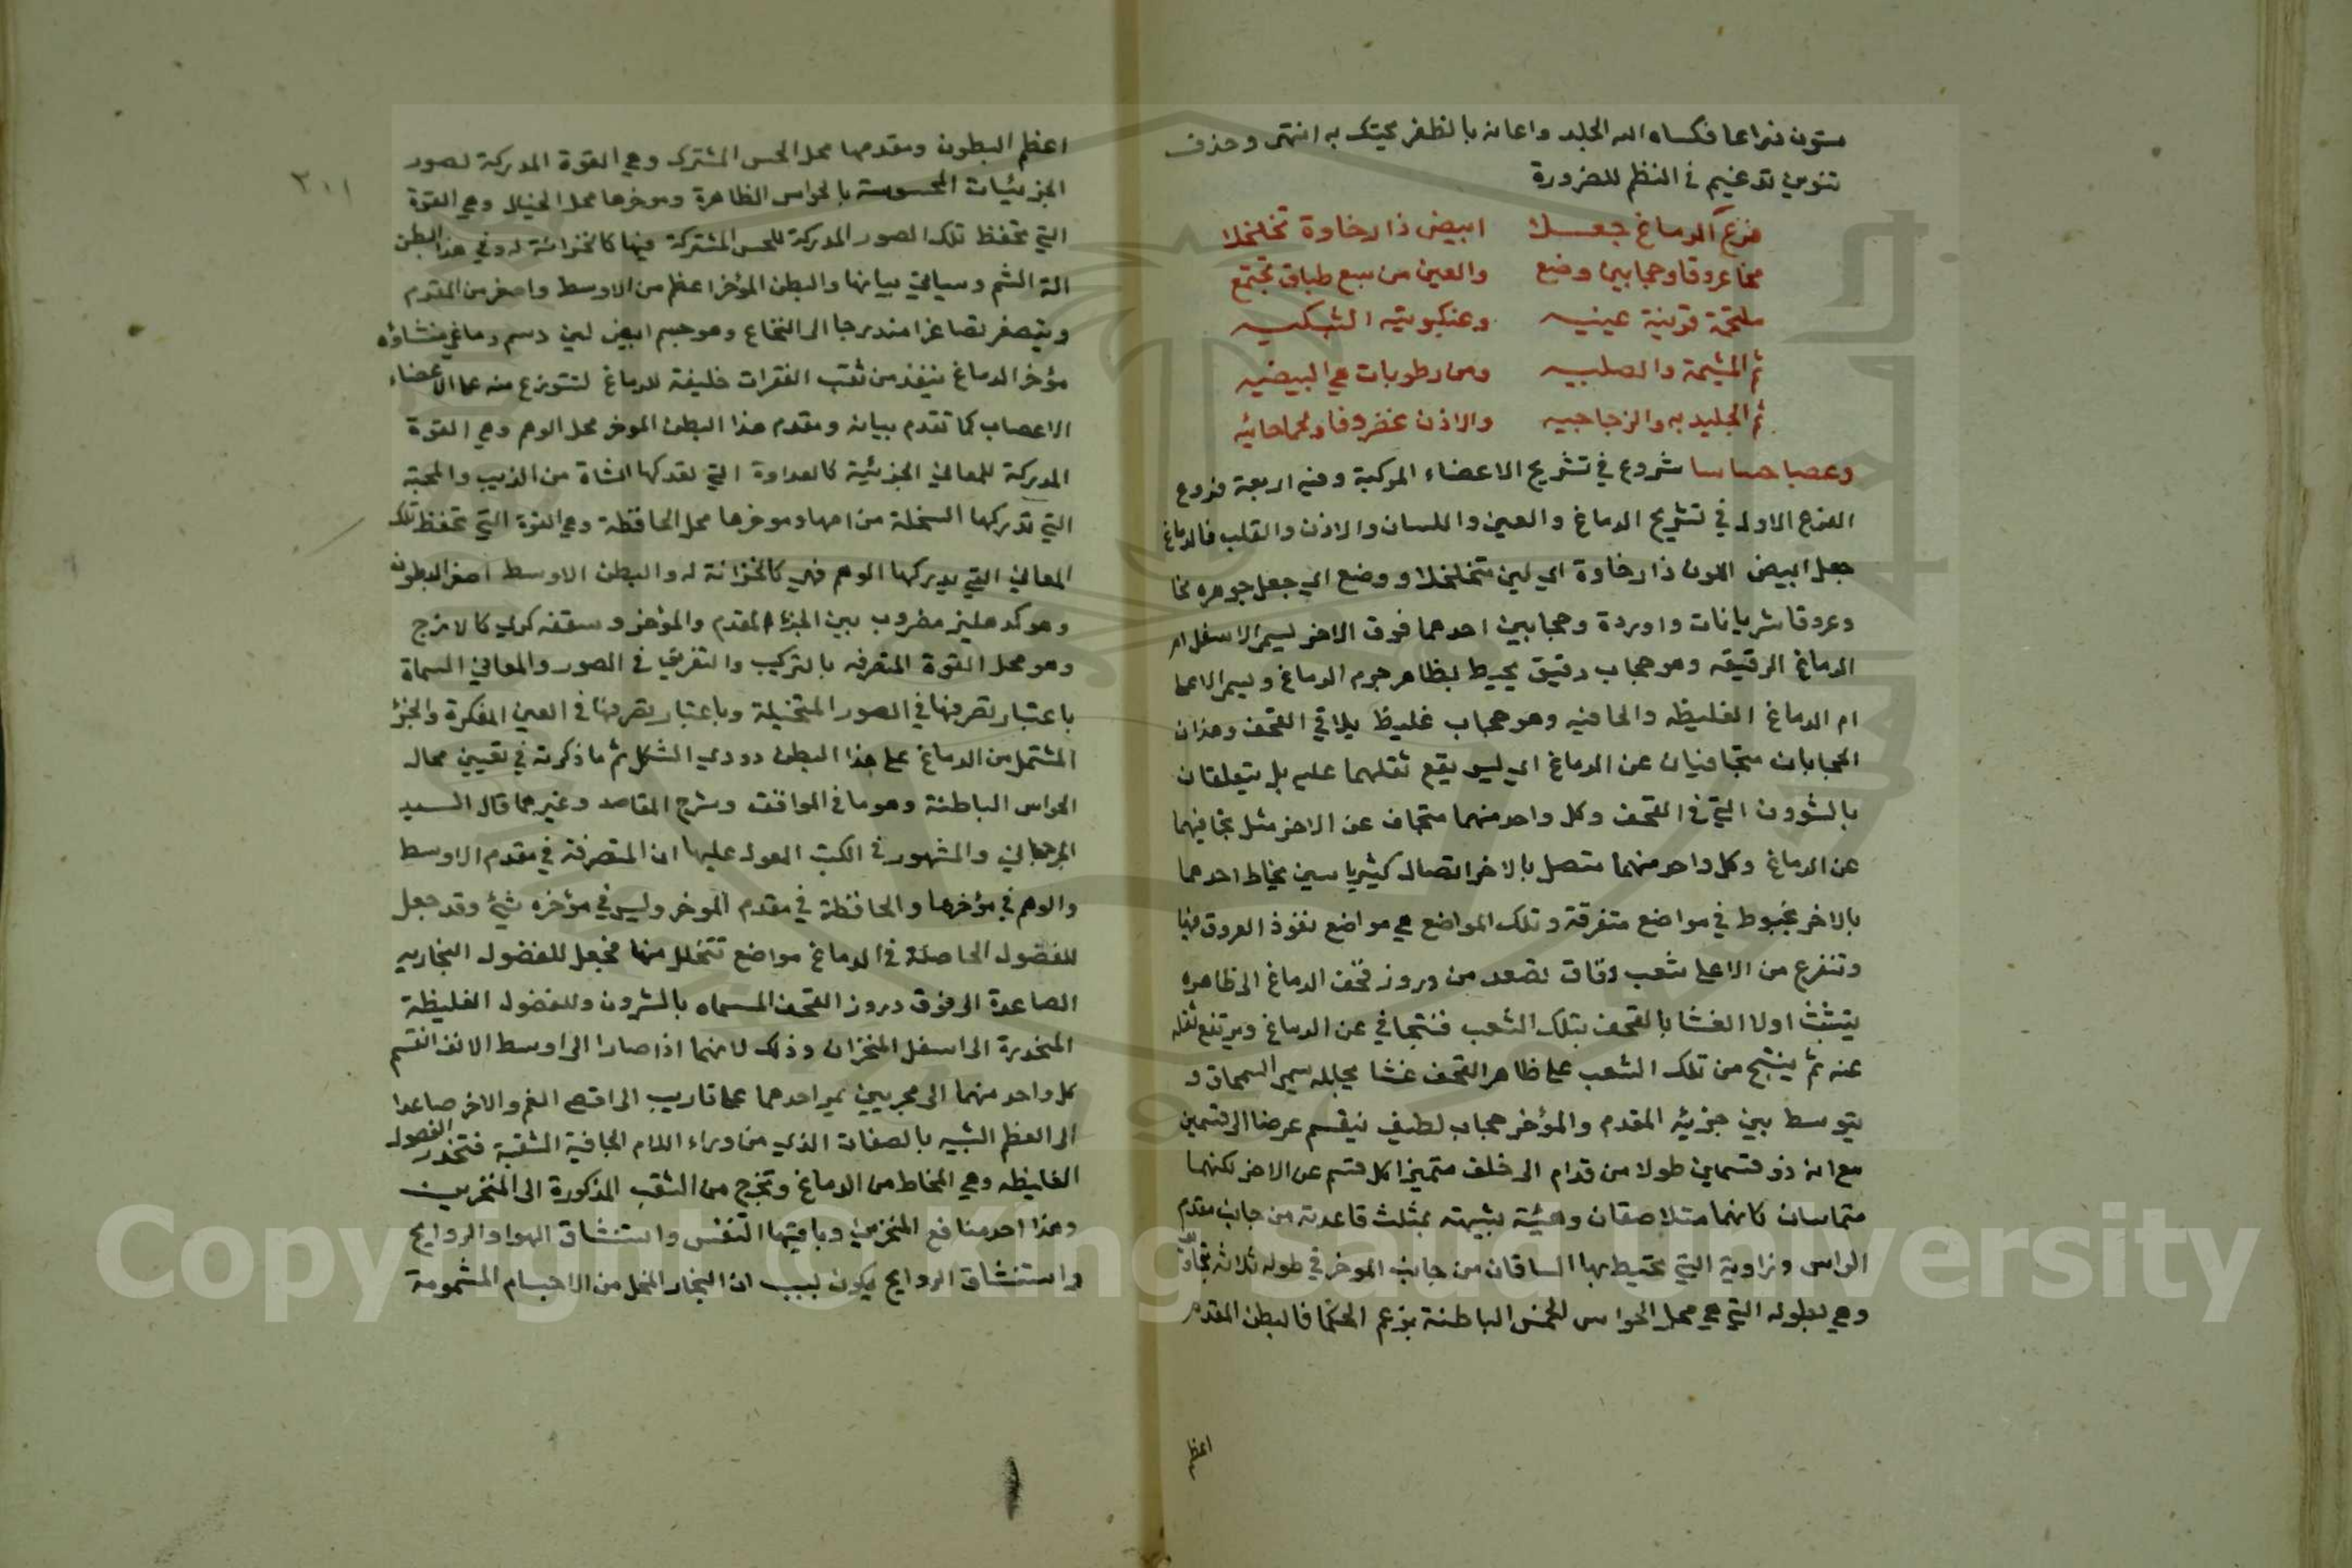 ستون ذراعا فكساه الله الجلد واعانه بالظفر يحتك به انتهى وحذف
تنوين تدغيم في النظم للضرورة
فرع الدماغ جعلا ابيض ذا رخاوة تخلخلا
مخا عروقا وحجابين وضع والعين من سبع طباق تجتمع
ملتحمة قرنية عنبيه وعنكبوتيه الشبكيه
ثم المشيمة والصلبيه ومن رطوبات هي البيضيه
ثم الجليديه والزجاجيه والاذن غضروفا ولحما
وعصبا حساسا شروع في تشريح الاعضاء المركبة وفيه اربعة فروع
الفرع الاول في تشريح الدماغ والعين واللسان والاذن والقلب فالدماغ
جعل ابيض اللون ذا رخاوة اي لين متخلخلا ووضع اي جعل جوهره مخا
وعروقا شريانات واوردة وحجابين احدهما فوق الاخر يسمى الاسفل ام
الدماغ الرقيقه وهو حجاب رقيق يحيط بظاهر جرم الدماغ ويسمى الاعلى
ام الدماغ الغليظه والجافيه وهو حجاب غليظ يلاقي القحف وهذان
الحجابان متجافيان عن الدماغ اي ليس يقع ثقلهما عليه بل يتعلقان
بالشوون التي في القحف وكل واحد منهما متجاف عن الاخر مثل تجافيهما
عن الدماغ وكل واحد منهما متصل بالاخر اتصال كثير يخاط احدهما
بالاخر بخيوط في مواضع متفرقة وتلك المواضع هي مواضع نفوذ العروق فيها
وتنفرع من الاعلى شعب دقاق تصعد من دروز قحف الدماغ الى ظاهره
يتشبث اولا الغشا بالقحف بتلك الشعب فتتجافي عن الدماغ ويرتفع ثقله
عنه ثم ينتسج من تلك الشعب على ظاهر القحف غشا يجلله يسمى السمحاق و
يتوسط بين جزئيه المقدم والمؤخر حجاب لطيف ينقسم عرضا الى قسمين
مع انه ذو قسمين طولا من قدام الى خلف متميزا كل قسم عن الاخر لكنهما
متماسان كانهما متلاصقان وهيئته شبيهة بمثلث قاعدته من جانب مقدم
الراس وزاوية التي يحيط بها الساقان من جانب الموخر في طوله ثلاثة تجاويف
وهي بطونه التي هي محل الحواس الخمس الباطنة بزعم الحكما فالبطن المقدم
اعظم
٢٠١
اعظم البطون ومقدمها محل الحس المشترك وهي القوة المدركة لصور
الجزئيات المحسوسة بالحواس الظاهرة وموخرها محل الخيال وهي القوة
التي تحفظ تلك الصور المدركة للحس المشتركة فيها كالخزانة له وفي هذا البطن
الة الشم وسياتي بيانها والبطن المؤخر اعظم من الاوسط واصغر من المقدم
ويتصغر تصاغرا مندرجا الى النخاع وهو جسم ابيض لين دسم دماغي منشاؤه
مؤخر الدماغ ينفذ من ثقب الفقرات خليفة للدماغ لتتوزع منه على الاعضاء
الاعصاب كما تقدم بيانه ومقدم هذا البطن الموخر محل الوهم وهي القوة
المدركة للمعاني الجزئية كالعداوة التي تدركها الشاة من الذيب والمحبة
التي تدركها السخلة من امها وموخرها محل الحافظة وهي القوة التي تحفظ تلك
المعاني التي يدركها الوهم فهي كالخزانة له والبطن الاوسط اصغر البطون
وهو كدهليز مضروب بين الجزء المقدم والمؤخر وسقفه كري كالازج
وهو محل القوة المتصرفه بالتركيب والتفريق في الصور والمعاني المسماة
باعتبار تصرفها في الصور المتخيلة وباعتبار تصرفها في العين المفكرة والجزؤ
المشتمل من الدماغ على هذا البطن دودي الشكل ثم ما ذكرته في تعيين محال
الحواس الباطنة وهو ما في المواقف وشرح المقاصد وغيرهما قال السيد
الجرجاني والمشهور في الكتب المعول عليها ان المتصرفة في مقدم الاوسط
والوهم في مؤخرها والحافظة في مقدم الموخر وليس في مؤخره شيء وقد جعل
للفضول الحاصلة في الدماغ مواضع تتخلل منها فجعل للفضول البخاريه
الصاعدة الى فوق دروز القحف المسماه بالشرون وللفضول الغليظة
المنحدرة الى اسفل المنخران وذلك لانهما اذا صارا الى اوسط الانف انقسم
كل واحد منهما الى مجريين يمر احدهما على تاريب الى اقصى الفم والاخر صاعدا
الى العظم الشبيه بالصفات الذي من وراء اللام الجافية الشقبة فتنحدر الفضول
الغليظه وهي المخاط من الدماغ وتخرج من الثقب المذكورة الى المنخرين
وهذا احد منافع المنخرين وباقيها التنفس واستنشاق الهوا والروايح
واستنشاق الروايح يكون بسبب ان البخار المنحل من الاجسام المشمومة
Copyright © King Saud University